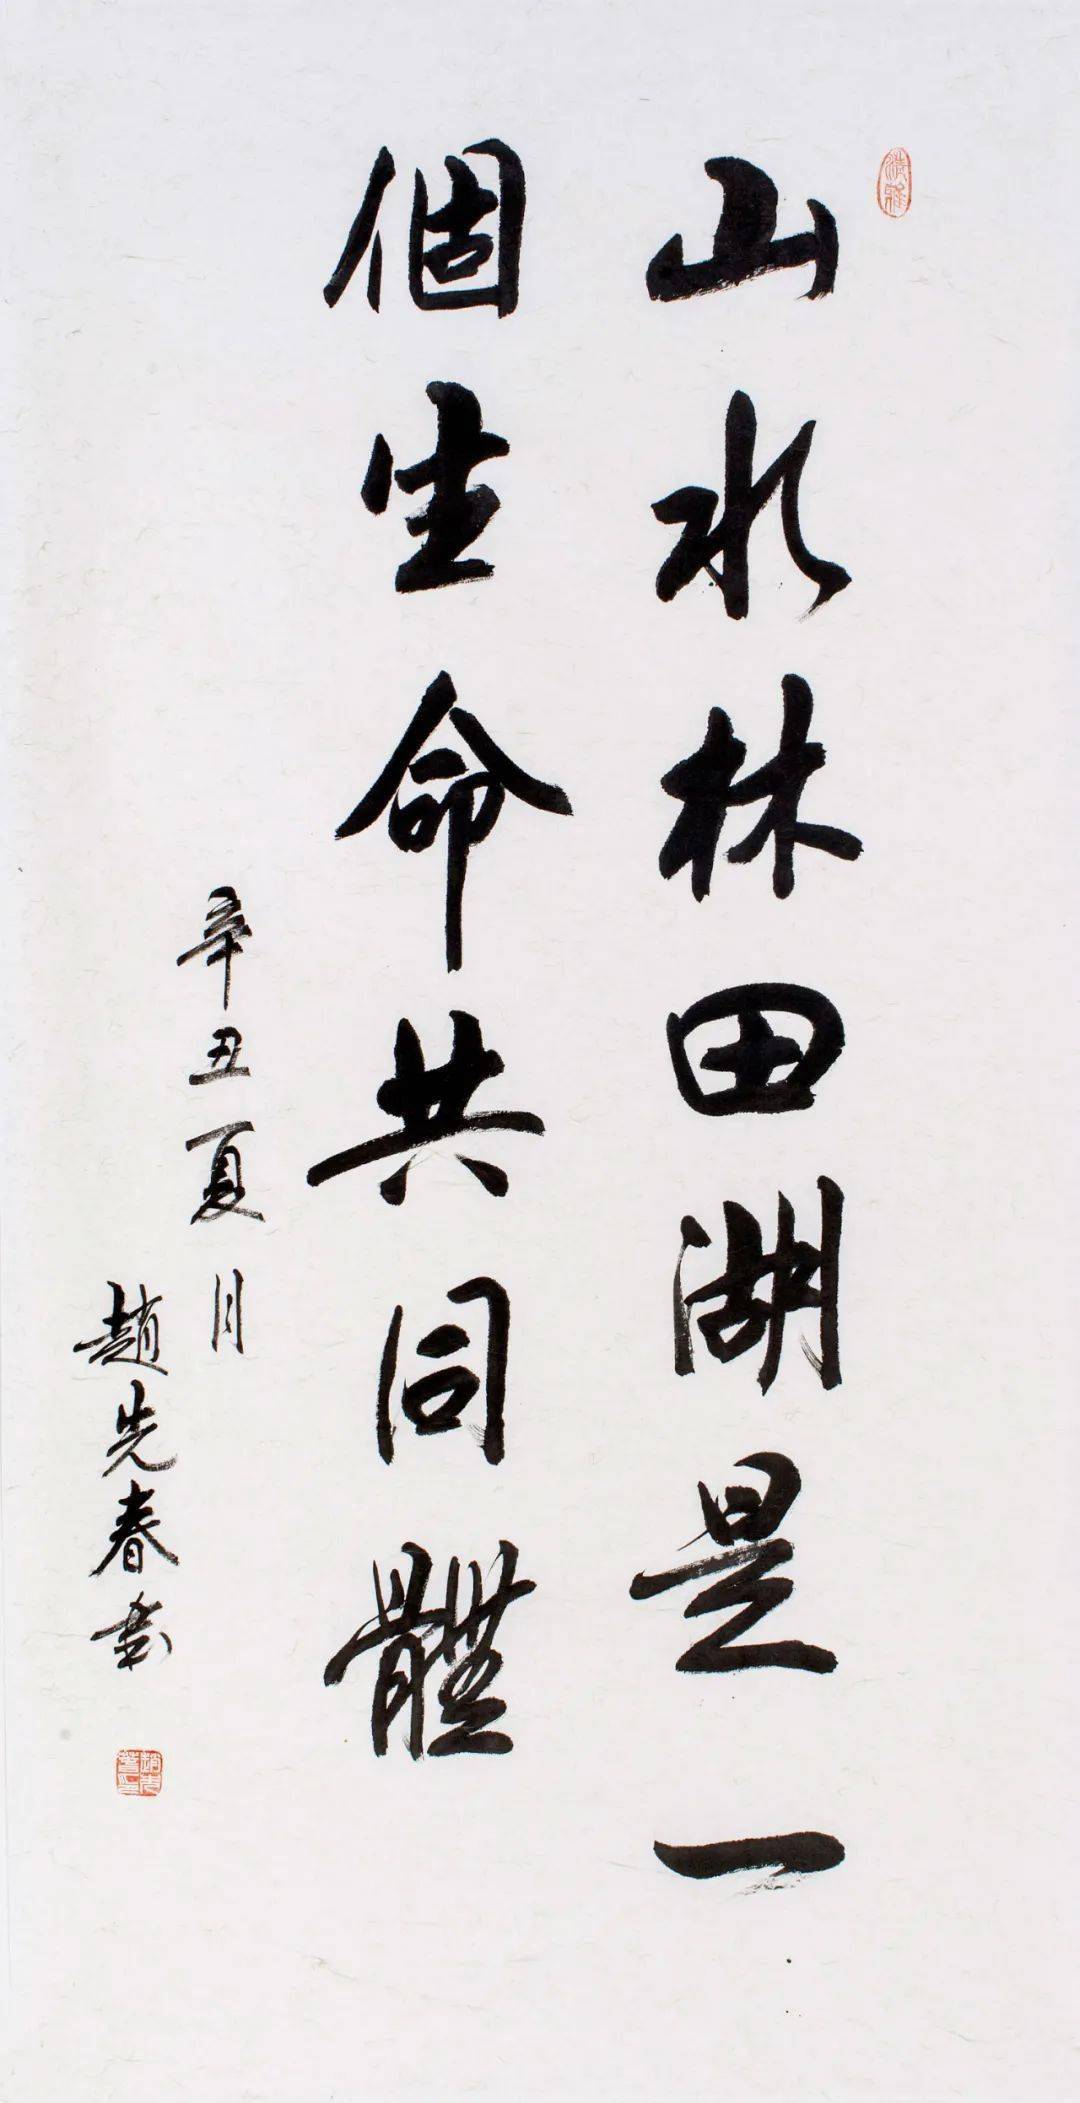 山水林田湖是一
個生命共同體
辛丑夏月
趙先春書